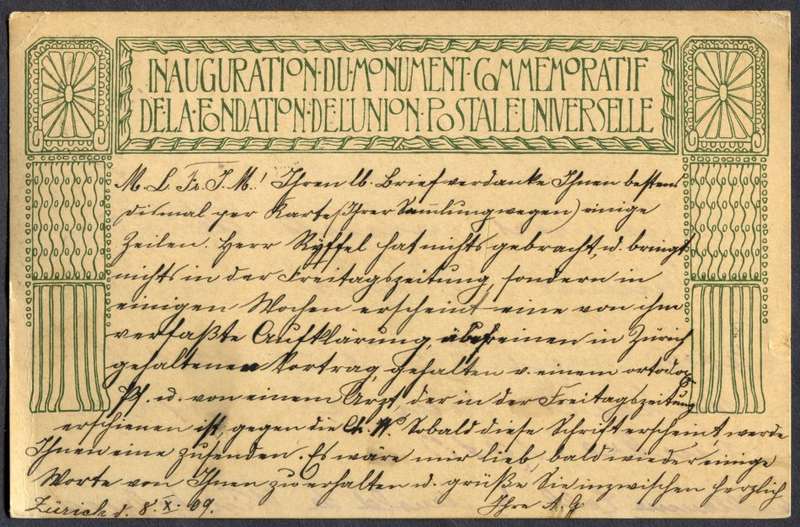 INAUGURATION·DU·MONUMENT·COMMEMORATIF
DE·LA·FONDATION·DE·L'UNION·POSTALE·UNIVERSELLE
M. L. Fr. J. M.! Ihren lb. Brief verdanke Ihnen bestens
dismal per Karte (Ihrer Sammlung wegen) einige
Zeilen. Herr Ryffel hat nichts gebracht, u. bringt
nichts in der Freitagszeitung, sondern in
einigen Wochen erscheint eine von ihm
verfaßte Aufklärung über einen in Zürich
gehaltenen Vortrag gehalten v. einem ortodox
Pf. u. von einem Arzt, der in der Freitagszeitung
erschienen ist, gegen die Ch. W. Sobald diese Schrift erscheint, werde
Ihnen eine zusenden. Es wäre mir lieb, bald wieder einige
Worte von Ihnen zu erhalten u. grüße Sie inzwischen herzlich
Zürich d. 8. X. 09. Ihre A. G